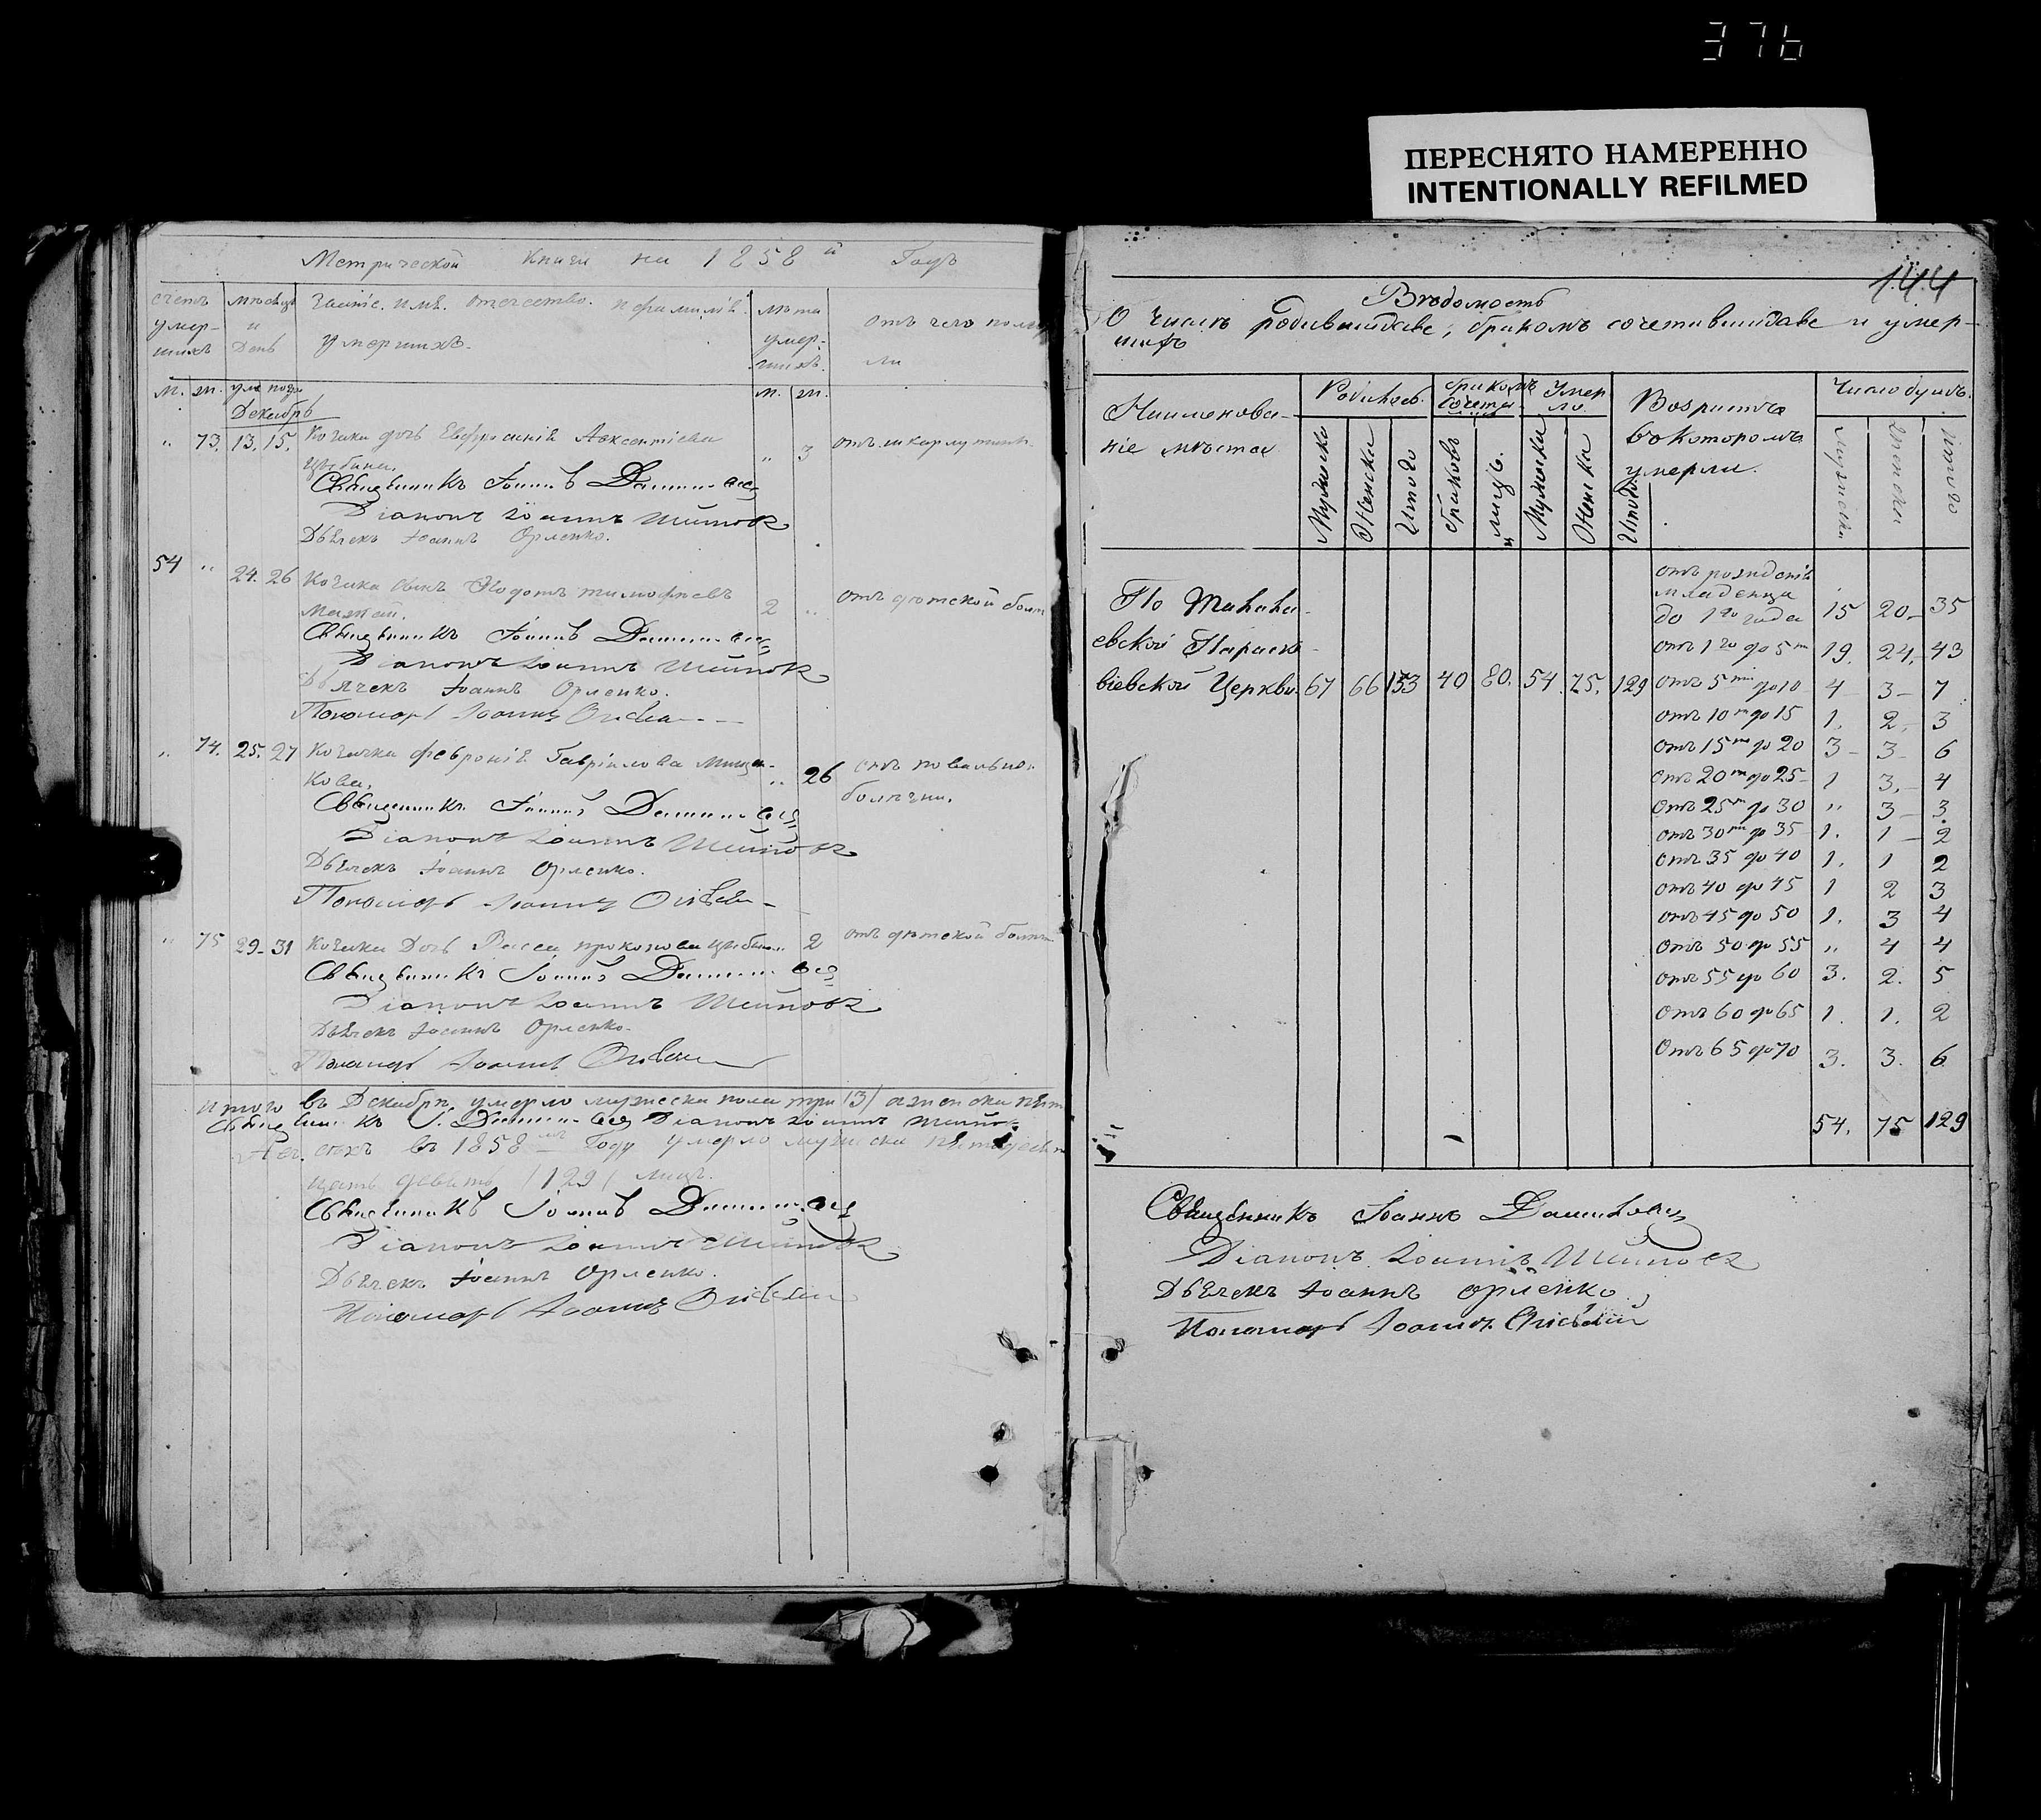 376
ПЕРЕСНЯТО НАМЕРЕННО
INTENTIONALLY REFILMED
Метрической книги на 1858 й Годъ
счетъ умер-шихъ
мѣсяцъ и День
Званіе. имя. отечество. и фамилія. умершихъ.
лѣта умер-шихъ.
отъ чего
м. ж.
м. ж.
Декабрь
" 73. 13. 15. Козака дочь Евфросинія Авксентіева " 3 отъ шкарлутины
Цыбина.
Священникъ Іоаннъ
Діаконъ Іоаннъ
Дьячекъ Іоаннъ Орленко.
54 " 24. 26 Козака сынъ Ѳеодотъ тимофеевъ 2 " отъ дѣтской
Священникъ Іоаннъ
Діаконъ Іоаннъ
Дьячекъ Іоаннъ Орленко.
Пономарь Іоаннъ
" 74. 25. 27 Козачка февронія Гавріилова " 26 отъ повальной
болѣзни.
Священникъ Іоаннъ
Діаконъ Іоаннъ
Дьячекъ Іоаннъ Орленко.
Пономарь Іоаннъ
" 75 29. 31 Козака Дочь прокопова 2 отъ дѣтской
Священникъ Іоаннъ
Діаконъ Іоаннъ
Дьячекъ Іоаннъ Орленко.
Пономарь Іоаннъ
Итого въ Декабрѣ умерло мужеска пола три (3) а женска
Священникъ І. Діаконъ Іоаннъ
въ 1858 мъ Году умерло мужеска
цать девять (129) лицъ.
Священникъ Іоаннъ
Діаконъ Іоаннъ
Дьячекъ Іоаннъ Орленко.
Пономарь Іоаннъ
144
Вѣдомость
О числѣ родившихся, бракомъ сочетавшихся и умер-
шихъ
Наименова-
ніе мѣста
Родилось.
Мужеска Женска Итого
бракомъ сочета-
браковъ лицъ.
Умер-ло.
Мужеска Женска Итого
Возрастъ
въ которомъ
умерли.
Число душъ.
Мужеска Женска итого
По
евской Параске-
віевской Церкви. 67 66 133 40 80. 54 75. 129
отъ рожденія
младенца
до 1го года 15 20 35
отъ 1го до 5ти 19. 24. 43
отъ 5ти до 10 4 3 7
отъ 10ти до 15 1. 2. 3
отъ 15ти до 20 3 3 6
отъ 20ти до 25 1 3. 4
отъ 25ти до 30 " 3 3.
отъ 30ти до 35 1. 1 2
отъ 35 до 40 1. 1 2
отъ 40 до 45 1 2 3
отъ 45 до 50 1. 3 4
отъ 50 до 55 " 4 4
отъ 55 до 60 3. 2. 5
отъ 60 до 65 1. 1. 2
отъ 65 до 70 3. 3. 6
54. 75 129
Священникъ Іоаннъ
Діаконъ Іоаннъ
Дьячекъ Іоаннъ Орленко
Пономарь Іоаннъ